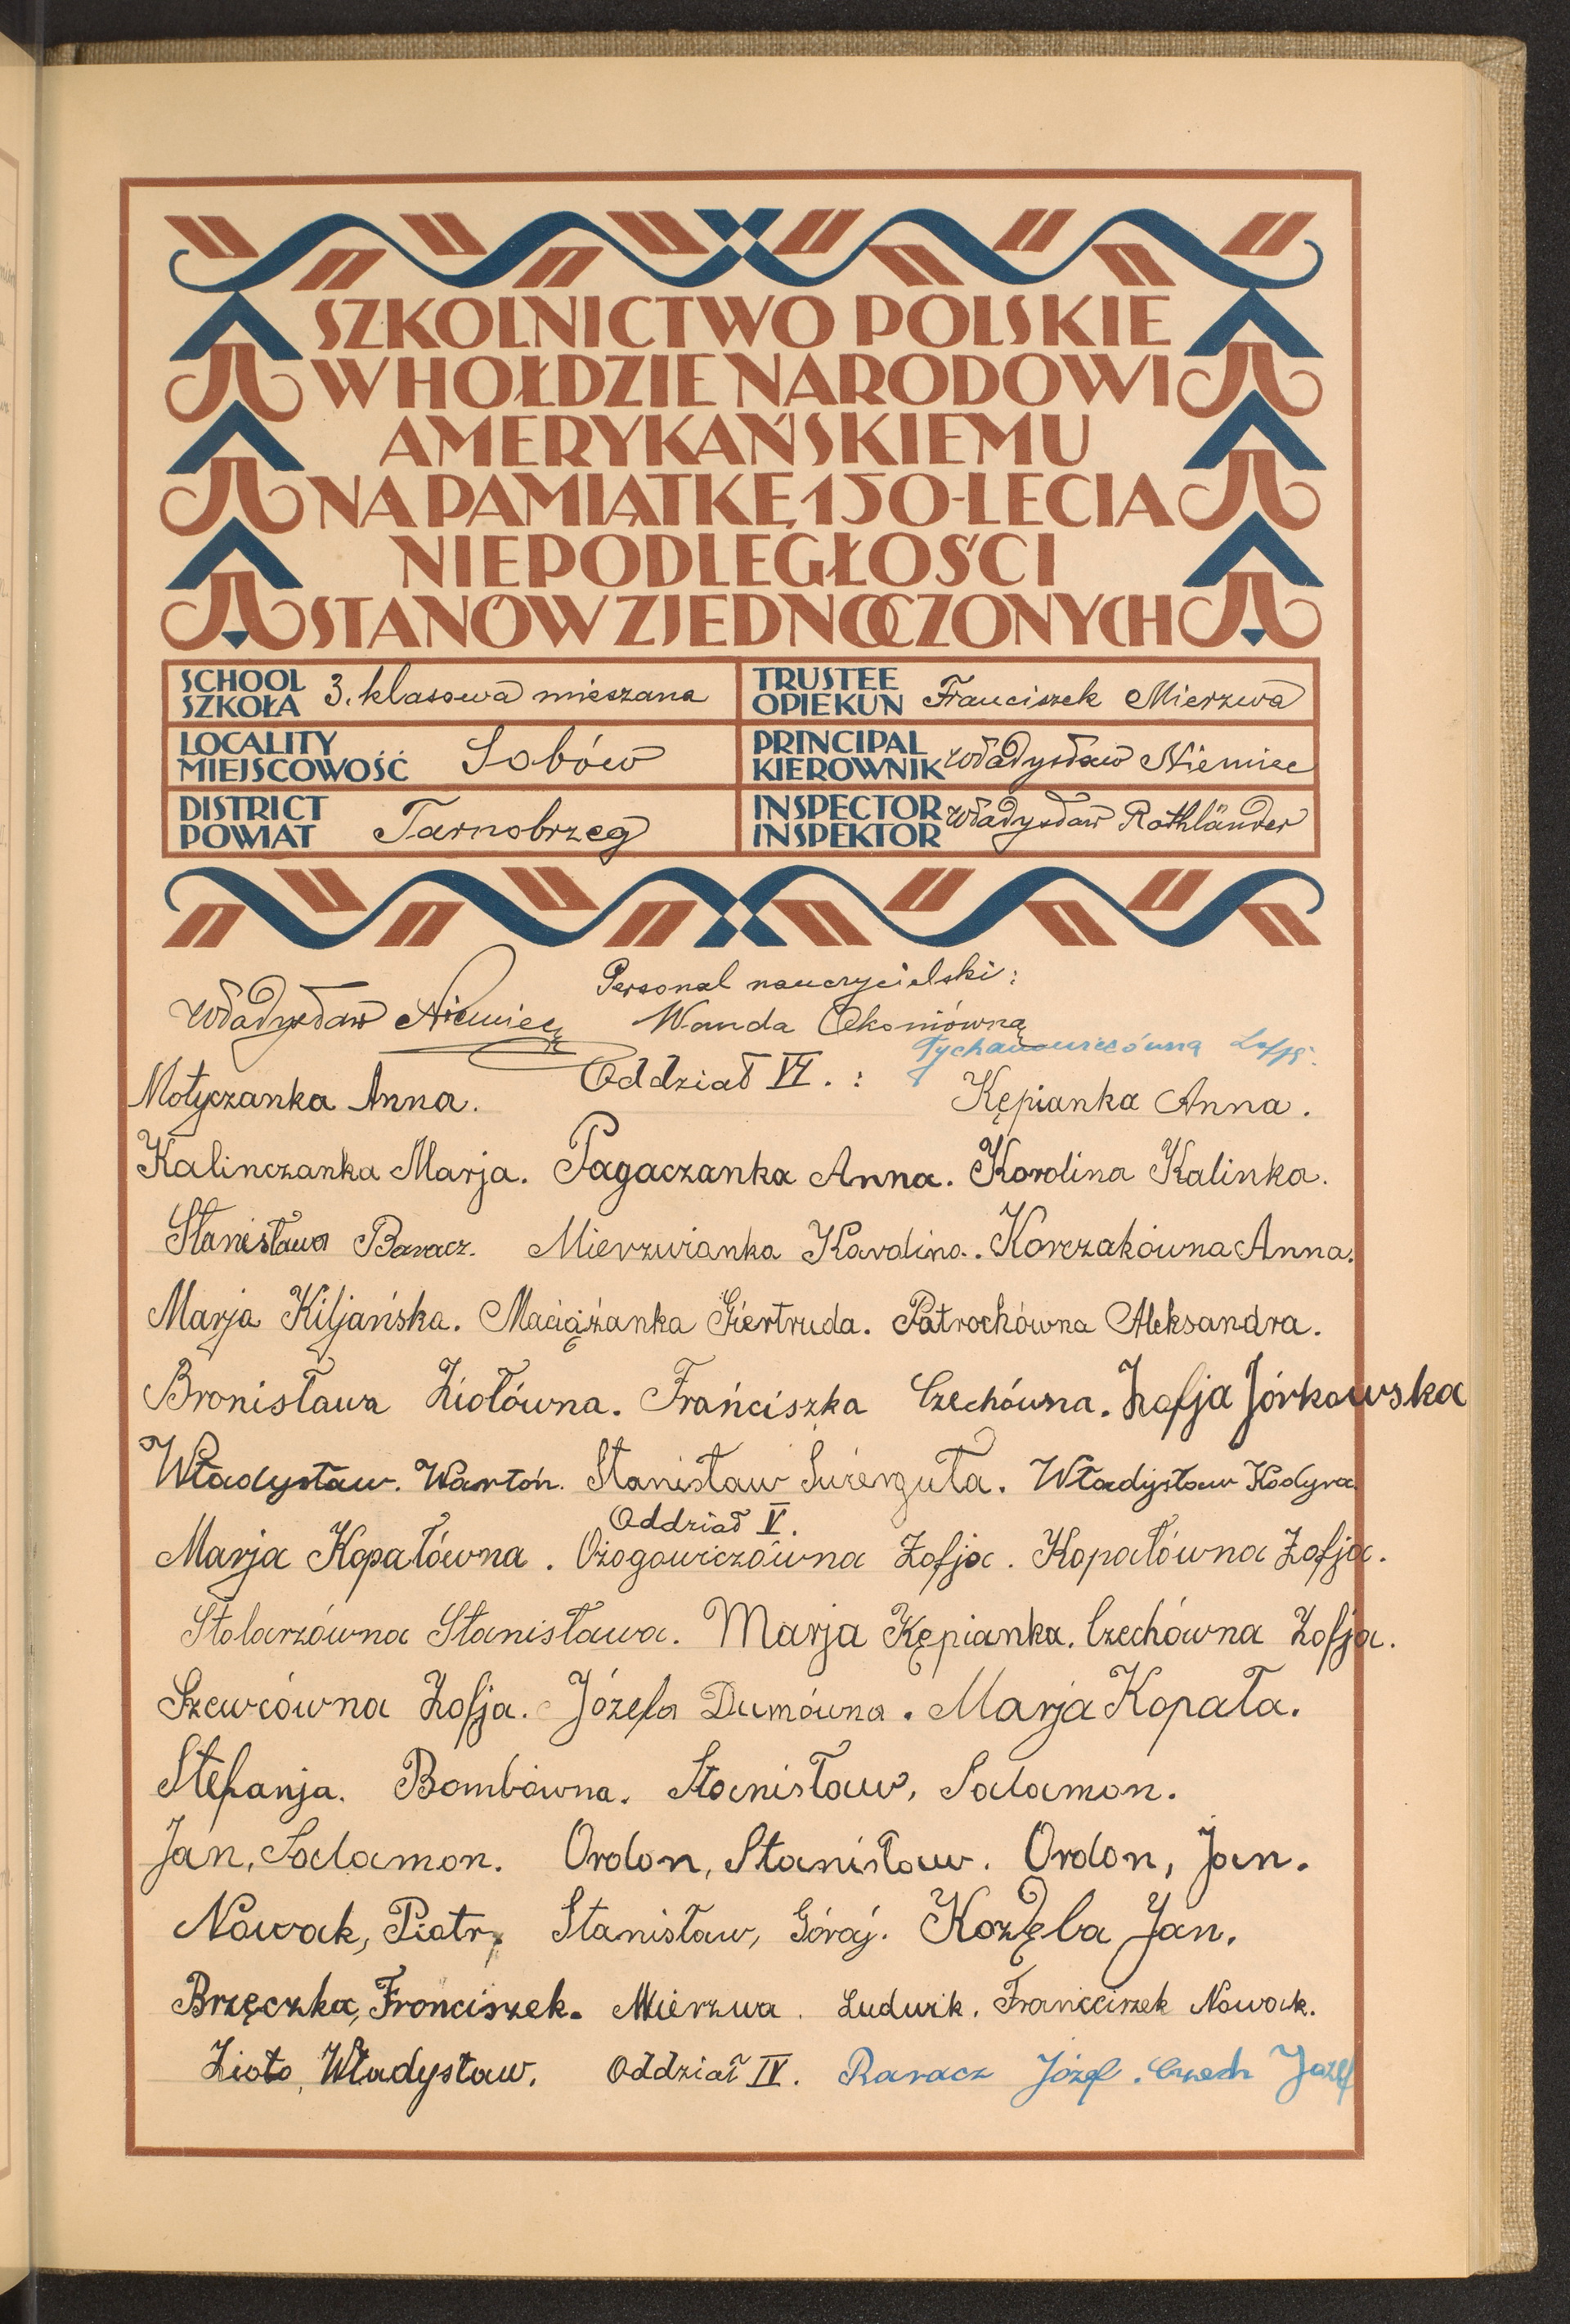 SZKOLNICTWO POLSKIE
W HOŁDZIE NARODOWI
AMERYKAŃSKIEMU
NA PAMIĄTKĘ 150-LECIA
NIEPODLEGŁOŚCI
STANÓW ZJEDNOCZONYCH
SCHOOL SZKOŁA 3. klasowa mieszana
TRUSTEE OPIEKUN Franciszek Mierzwa
LOCALITY MIEJSCOWOŚĆ Sobów
PRINCIPAL KIEROWNIK Władysław Niemiec
DISTRICT POWIAT Tarnobrzeg
INSPECTOR INSPEKTOR Władysław Rothländer
Personal nauczycielski:
Władysław Niemiec Wanda
Oddział VI. :
Motyczanka Anna. Kępianka Anna.
Kalinczanka Marja. Pagaczanka Anna. Karolina Kalinka.
Stanisława Baracz. Mierzwianka Karolina. Korczakówna Anna.
Marja Kiljańska. Maciążanka Giertruda. Patrochówna Aleksandra.
Bronisława Ziołówna. Frańciszka Czechówna. Zofja Jórkowska
Władysław. Wartoń. Stanisław Władysław Kodyra
Oddział V.
Marja Kopałówna. Ożogowiczówna Zofja. Kopałówna Zofja.
Stolarzówna Stanisława. Marja Kępianka. Czechówna Zofja.
Szewcówna Zofja. Józefa Dumówna. Marja Kopała.
Stefanja. Bombówna. Stanisław, Salamon.
Jan, Salamon. Ordon, Stanisław. Ordon, Jan.
Nowak, Piotr, Stanisław, Góraj. Kozęba Jan.
Brzęczka, Franciszek. Mierzwa. Ludwik. Francciszek Nowak.
Zioło, Władysław. Oddział IV. Baracz Józef. Czech Józef